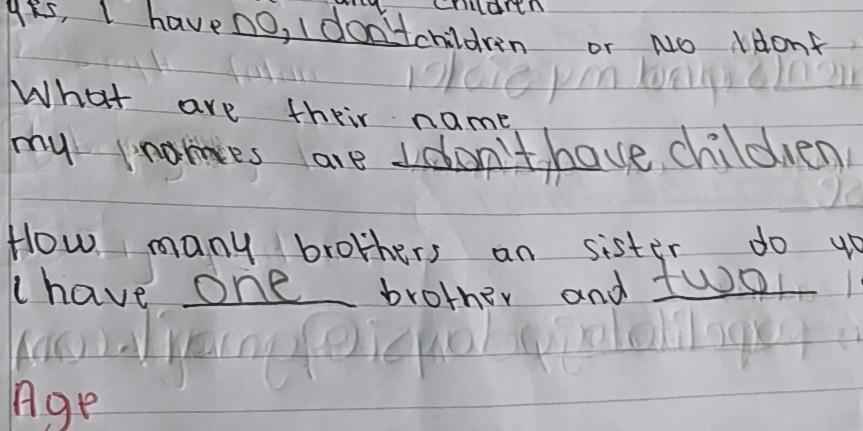 yes, I have no, I don't children or No I dont
What are their name
my names are I don't have children
How many brothers an sister do yo
I have one brother and two
Age